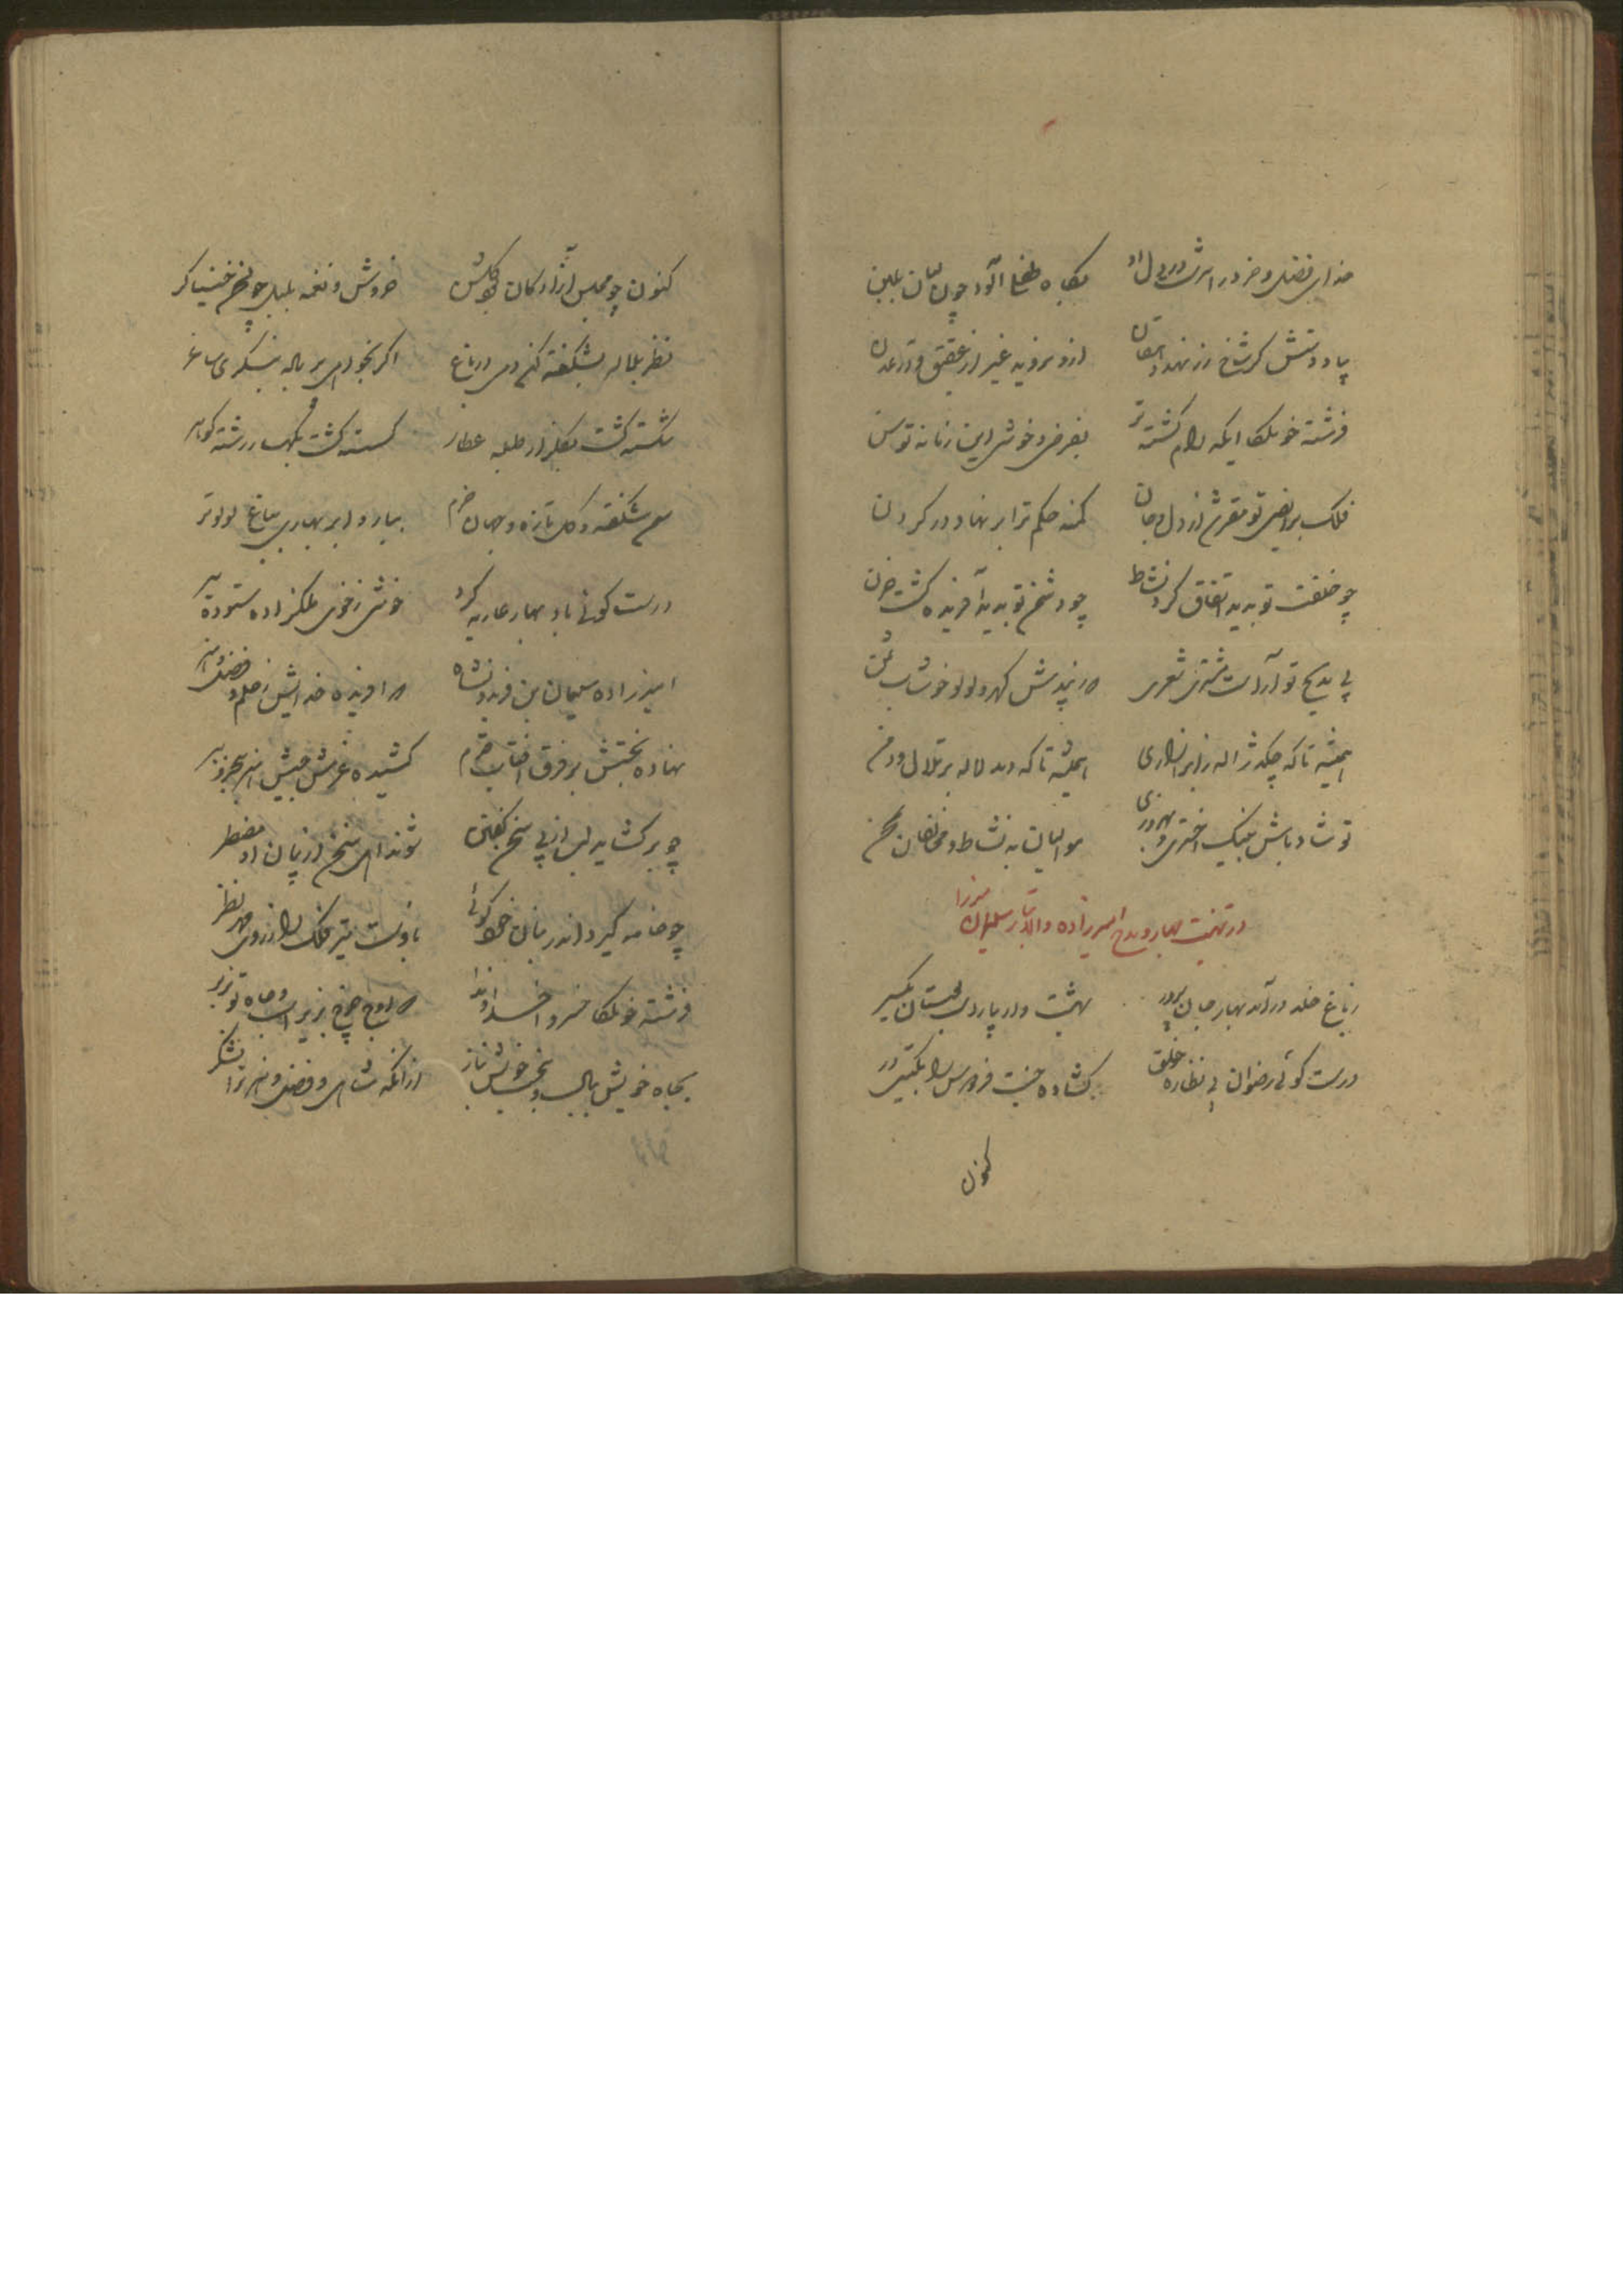 خدای فضل و خرد را سرشت در دل او
بگاه طفلی آلود چون لبان بلبن
بیاد دستش گر شاخ رز نهد دهقان
ازو بروید غیر از عقیق و در عدن
فرشته خو ملکا ایکه رام گشته ترا
بفر فرخ خوش این زمانه توسن
فلک براضی تو مقرش از دل و جان
کمند حکم ترا بر نهاد در گردن
چو خلقت تو بدید اتفاق کرد نشاط
چو دشمن تو بدید آفریده گشت حزن
پی مدیح تو آراست مشتری شعری
همیشه تا که چکد ژاله ز ابر آذاری
همیشه تا که دمد لاله بر تلال و دمن
تو شاد باش بنیک اختری و بهروزی
موالیان به نشاط و مخالفان بمحن
در تهنیت بهار و مدح امیرزاده والاتبار سلیمان میرزا
ز باغ خلد درآمد بهار جان پرور
بهشت وار بیاراست بوستان یکسر
درست گوئی رضوان پی نظاره خلق
گشاده جنت فردوس را بگیتی در
کنون
کنون چو مجلس آزادگان بود گلشن
خروش و نغمه بلبل چو نغمه خنیاگر
نظر بلاله بشکفته کن دمی در باغ
اگر نخواهی بر ناله بنگری ساغر
شکسته گشت بگلزار طبله عطار
گسسته گشت بکهسار رشته گوهر
سمن شکفته و گل تازه و جهان خرم
ببارد ابر بهاری بباغ لولو تر
درست گوئی باد بهار عاریه کرد
خوشی ز خوی ملکزاده ستوده سیر
امیرزاده سلیمان بن فریدونشاه
که آفریده خدایش ز حلم و فضل و هنر
نهاده بختش بر فرق آفتاب قدم
کشیده عزمش جیش اندر بحر و ببر
چو برگشاید لب از پی سخن گفتن
شوند اهل سخن از بیان او مضطر
چو خامه گیرد اندر بنان خط گوئی
باوست تیر فلک را ز روی مهر نظر
فرشته خو ملکا خسروا خداوندا
که اوج چرخ بزیر است و جاه تو زبر
بجاه خویش ببال و ببخت خویش بناز
از آنکه شاهی و فضل و هنر ترا لشکر